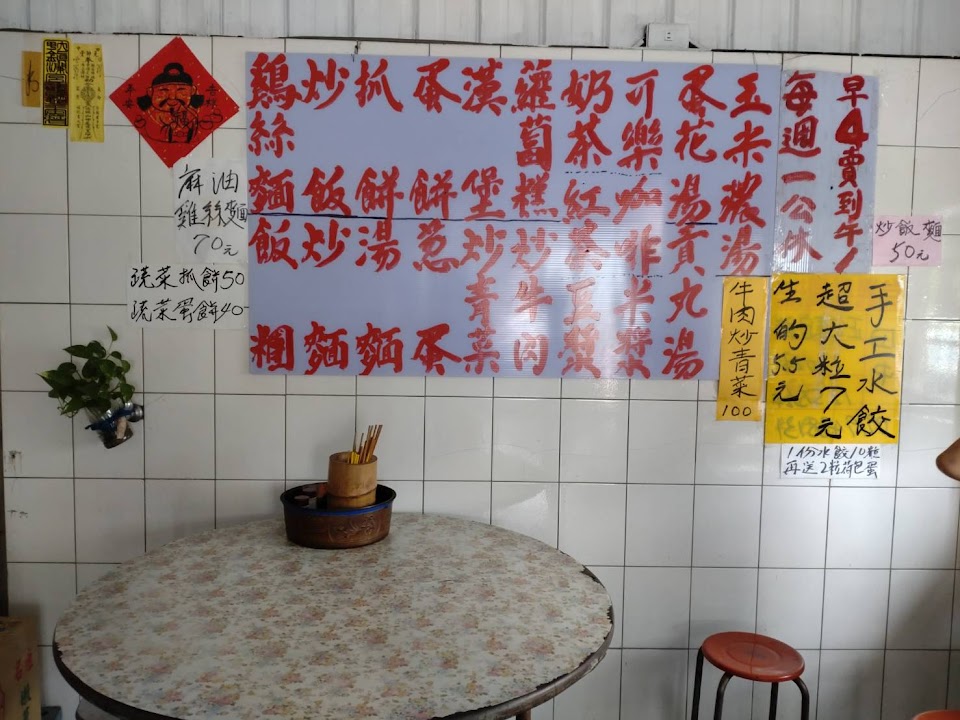 早4賣到午1
每週一公休
玉米濃湯
蛋花湯
貢丸湯
可樂
咖啡
米漿
奶茶
紅茶
豆漿
蘿葛糕
炒牛肉
漢堡
炒青菜
蛋餅
葱蛋
抓餅
湯麵
炒飯
炒麵
鷄絲麵
飯糰
麻油
雞絲麵
70元
蔬菜抓餅50
蔬菜蛋餅40-
炒飯麵
50元
牛肉炒青菜100
手工水餃
超大粒7元
生的5.5元
1份水餃10粒
再送2粒荷包蛋